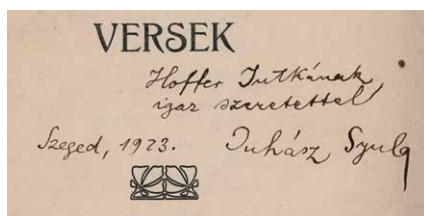 VERSEK
Hoffer Jutkának,
igaz szeretettel
Szeged, 1923. Juhász Gyula